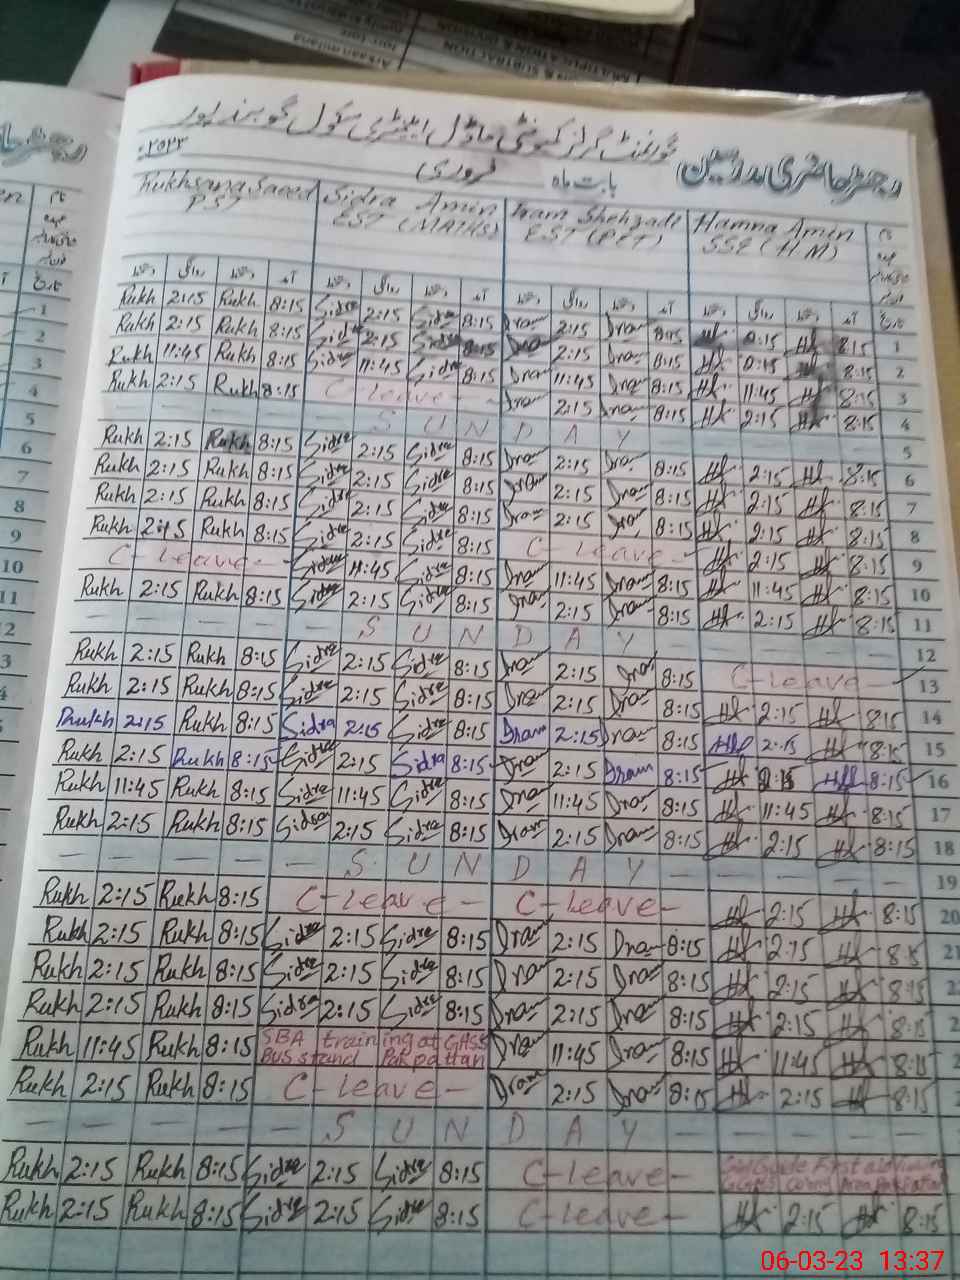 رجسٹر حاضری مدرسین گورنمنٹ گرلز کمیونٹی ماڈل ایلیمنٹری سکول گوبند پور
بابت ماہ فروری ۲۰۲۳ء
Rukhsana Saeed Sidra Amin Iram Shehzadi Hamna Amin
PST EST (MATHS) EST (PET) SSE (H M)
Rukh 2:15 Rukh 8:15 Sidra 2:15 Sidra 8:15 Iram 2:15 Iram 8:15 8:15 1
Rukh 2:15 Rukh 8:15 Sidra 2:15 Sidra 8:15 Iram 2:15 Iram 8:15 8:15 2
Rukh 11:45 Rukh 8:15 Sidra 11:45 Sidra 8:15 Iram 11:45 Iram 8:15 11:45 8:15 3
Rukh 2:15 Rukh 8:15 C-leave- Iram 2:15 Iram 8:15 2:15 8:15 4
S U N D A Y 5
Rukh 2:15 Rukh 8:15 Sidra 2:15 Sidra 8:15 Iram 2:15 Iram 8:15 2:15 8:15 6
Rukh 2:15 Rukh 8:15 Sidra 2:15 Sidra 8:15 Iram 2:15 Iram 8:15 2:15 8:15 7
Rukh 2:15 Rukh 8:15 Sidra 2:15 Sidra 8:15 Iram 2:15 Iram 8:15 2:15 8:15 8
Rukh 2:15 Rukh 8:15 Sidra 2:15 Sidra 8:15 C-leave- 2:15 8:15 9
C-leave- Sidra 11:45 Sidra 8:15 Iram 11:45 Iram 8:15 11:45 8:15 10
Rukh 2:15 Rukh 8:15 Sidra 2:15 Sidra 8:15 Iram 2:15 Iram 8:15 2:15 8:15 11
S U N D A Y 12
Rukh 2:15 Rukh 8:15 Sidra 2:15 Sidra 8:15 Iram 2:15 Iram 8:15 C-leave 13
Rukh 2:15 Rukh 8:15 Sidra 2:15 Sidra 8:15 Iram 2:15 Iram 8:15 2:15 8:15 14
Rukh 2:15 Rukh 8:15 Sidra 2:15 Sidra 8:15 Iram 2:15 Iram 8:15 2:15 8:15 15
Rukh 2:15 Rukh 8:15 Sidra 2:15 Sidra 8:15 Iram 2:15 Iram 8:15 8:15 16
Rukh 11:45 Rukh 8:15 Sidra 11:45 Sidra 8:15 Iram 11:45 Iram 8:15 11:45 8:15 17
Rukh 2:15 Rukh 8:15 Sidra 2:15 Sidra 8:15 Iram 2:15 Iram 8:15 2:15 8:15 18
S U N D A Y 19
Rukh 2:15 Rukh 8:15 C-leave- C-leave- 2:15 8:15 20
Rukh 2:15 Rukh 8:15 Sidra 2:15 Sidra 8:15 Iram 2:15 Iram 8:15 2:15 8:15 21
Rukh 2:15 Rukh 8:15 Sidra 2:15 Sidra 8:15 Iram 2:15 Iram 8:15 2:15 8:15
Rukh 2:15 Rukh 8:15 Sidra 2:15 Sidra 8:15 Iram 2:15 Iram 8:15 2:15 8:15
Rukh 11:45 Rukh 8:15 SBA training at GHSS Bus stand Pakpattan Iram 11:45 Iram 8:15 11:45 8:15
Rukh 2:15 Rukh 8:15 C-leave- Iram 2:15 Iram 8:15 2:15 8:15
S U N D A Y
Rukh 2:15 Rukh 8:15 Sidra 2:15 Sidra 8:15 C-leave- Girl Guide First aid
Rukh 2:15 Rukh 8:15 Sidra 2:15 Sidra 8:15 C-leave- 2:15 8:15
06-03-23 13:37